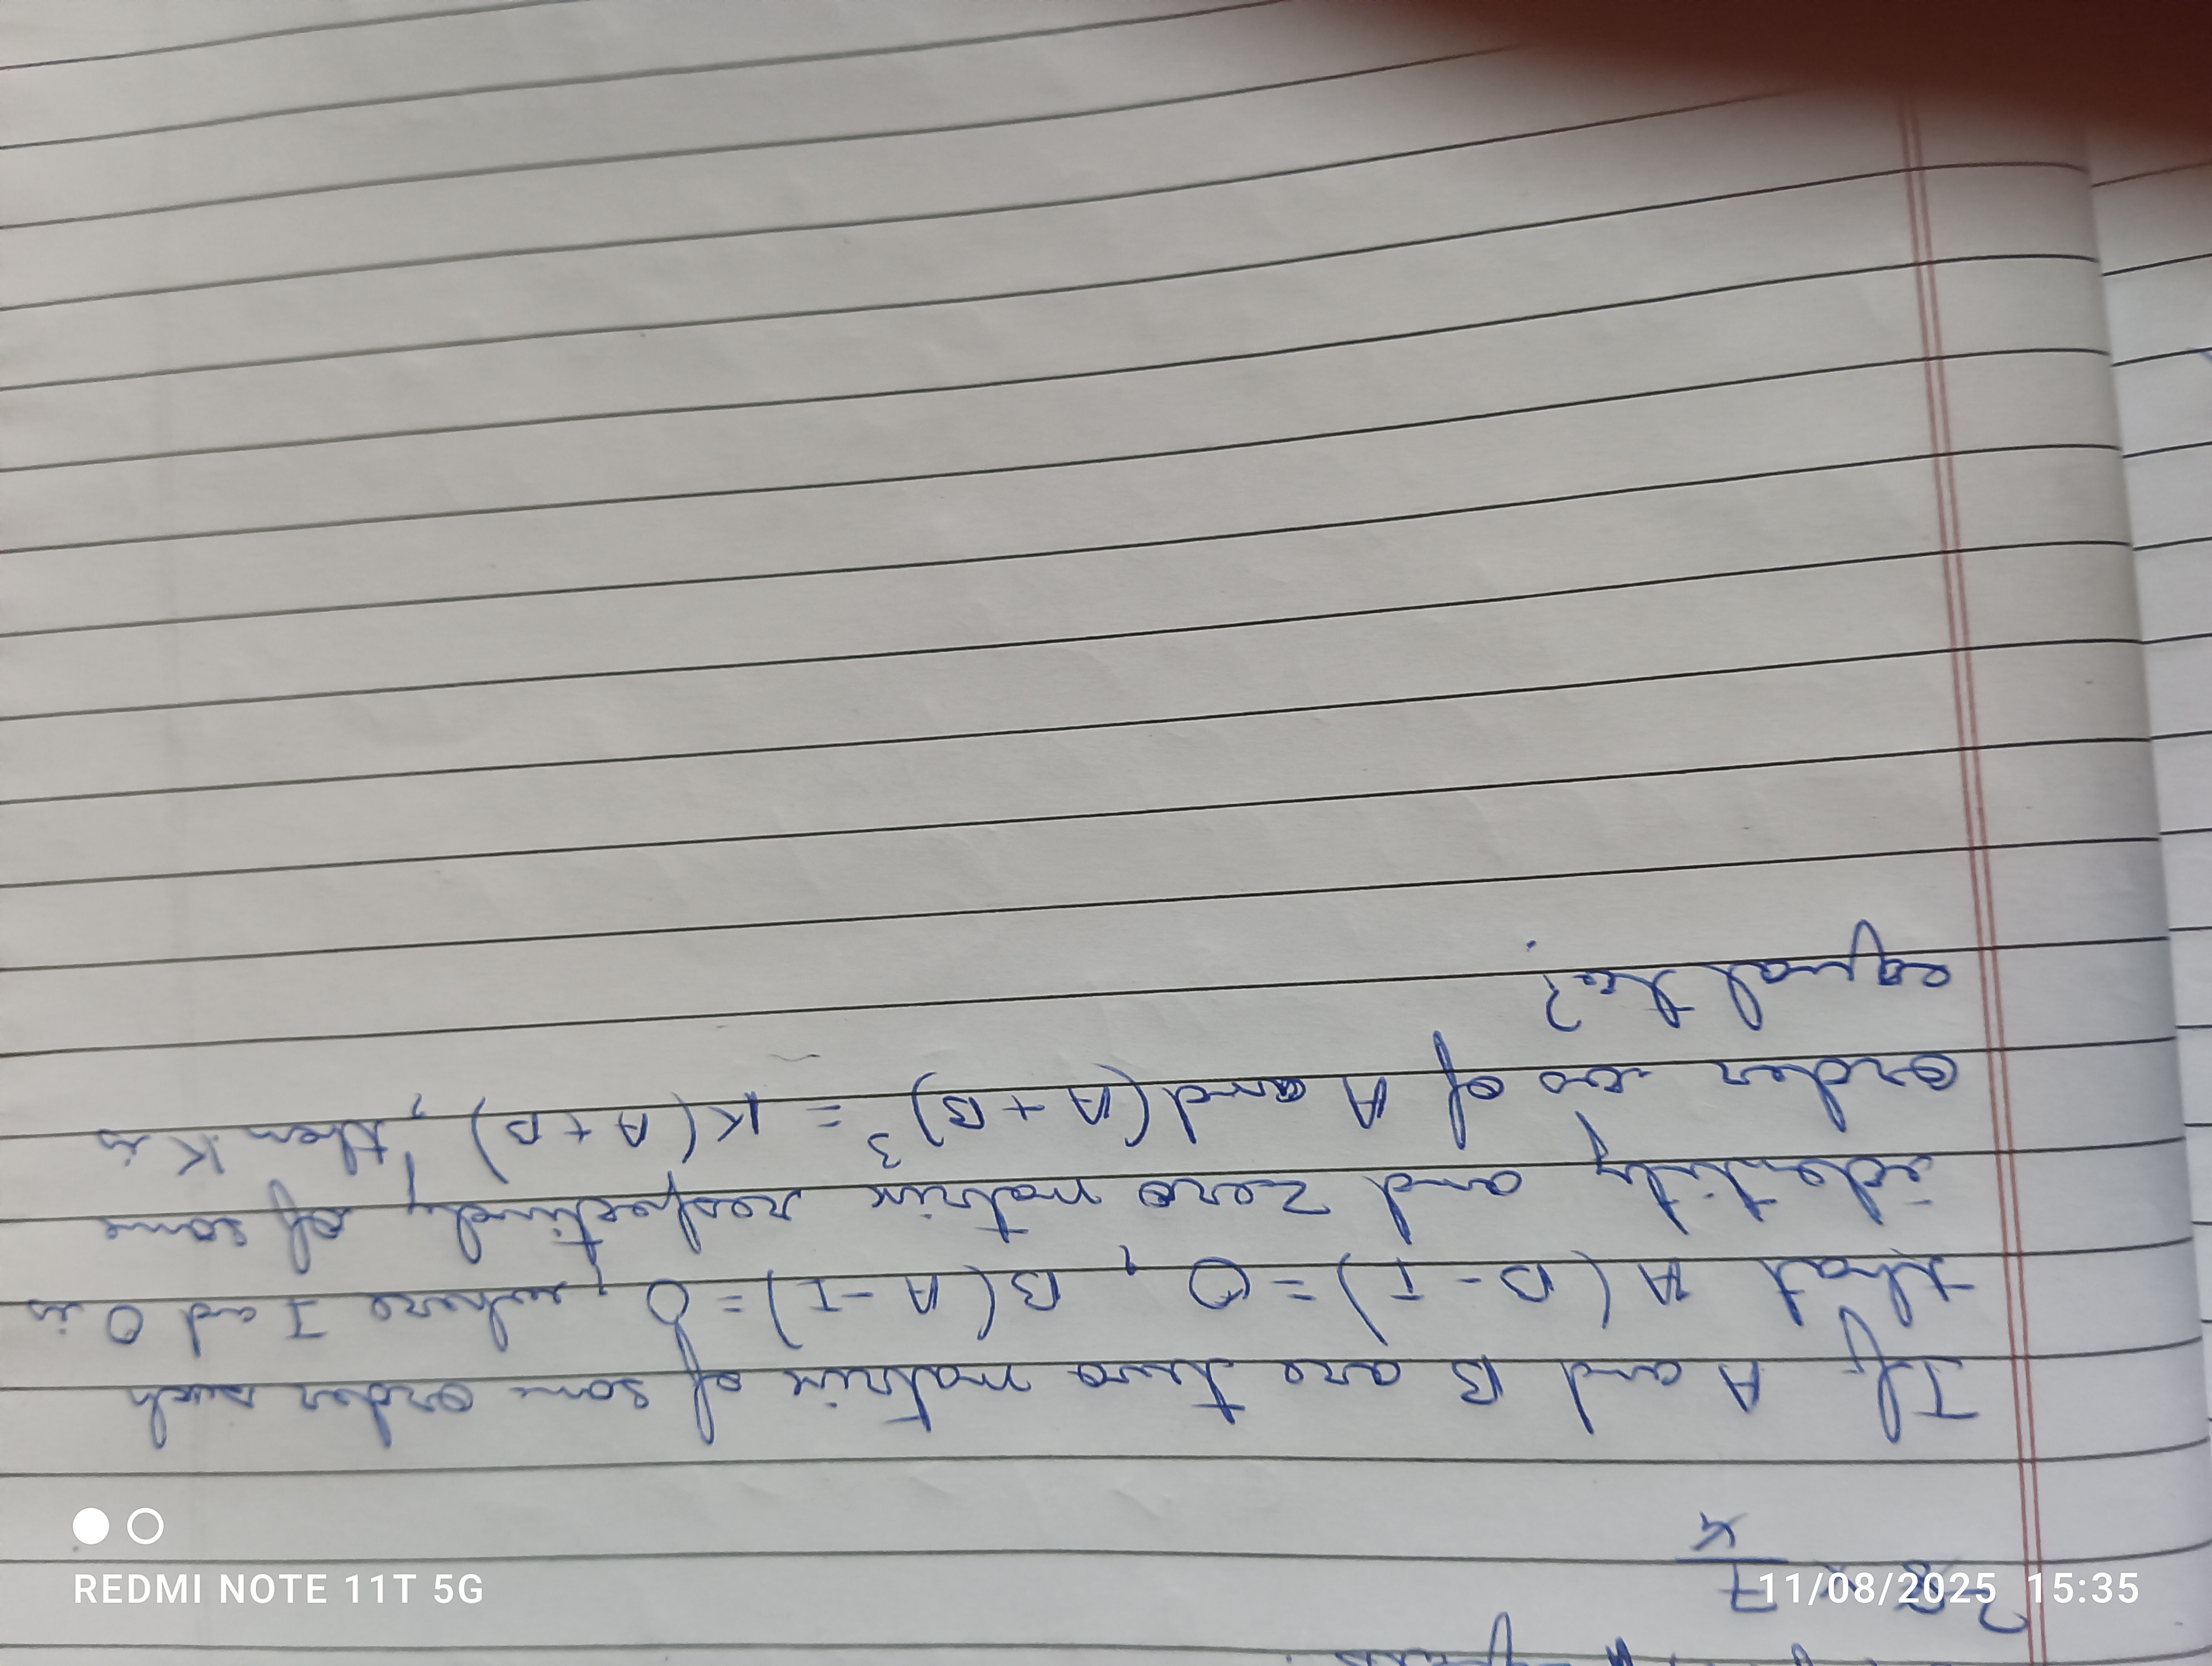 If A and B are two matrix of same order such
that A(B-I)=O, B(A-I)=O, where I and O is
identity and zero matrix respectively of same
order as of A and (A+B)³ = K(A+B), then K is
equal to?
REDMI NOTE 11T 5G
11/08/2025 15:35